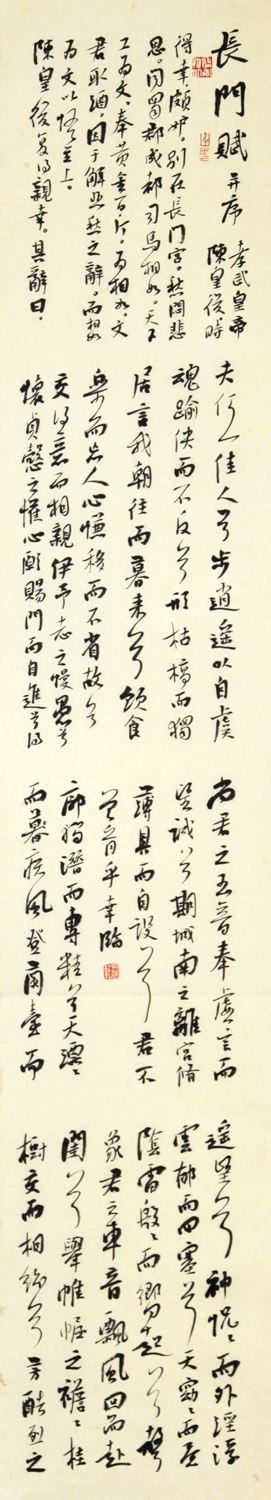 長門賦 并序 孝武皇帝
陳皇后時
得幸頗妒別在長門宮愁悶悲
思聞蜀郡成都司馬相如天下
工為文奉黃金百斤為相如文
君取酒因于解悲愁之辭而相如
為文以悟主上
陳皇后復得親幸其辭曰
夫何一佳人兮步逍遙以自虞
魂踰佚而不反兮形枯槁而獨
居言我朝往而暮來兮飲食
樂而忘人心慊移而不省故兮
交得意而相親伊予志之慢愚兮
懷貞愨之懽心願賜問而自進兮得
尚君之玉音奉虛言而
望誠兮期城南之離宮脩
薄具而自設兮君不
肯乎幸臨
廓獨潛而專精兮天漂漂
而暮疾風登蘭臺而
遙望兮神怳怳而外淫浮
雲郁而四塞兮天窈窈而晝
陰雷殷殷而響起兮聲
象君之車音飄風回而赴
閨兮舉帷幄之襜襜桂
樹交而相紛兮芳酷烈之